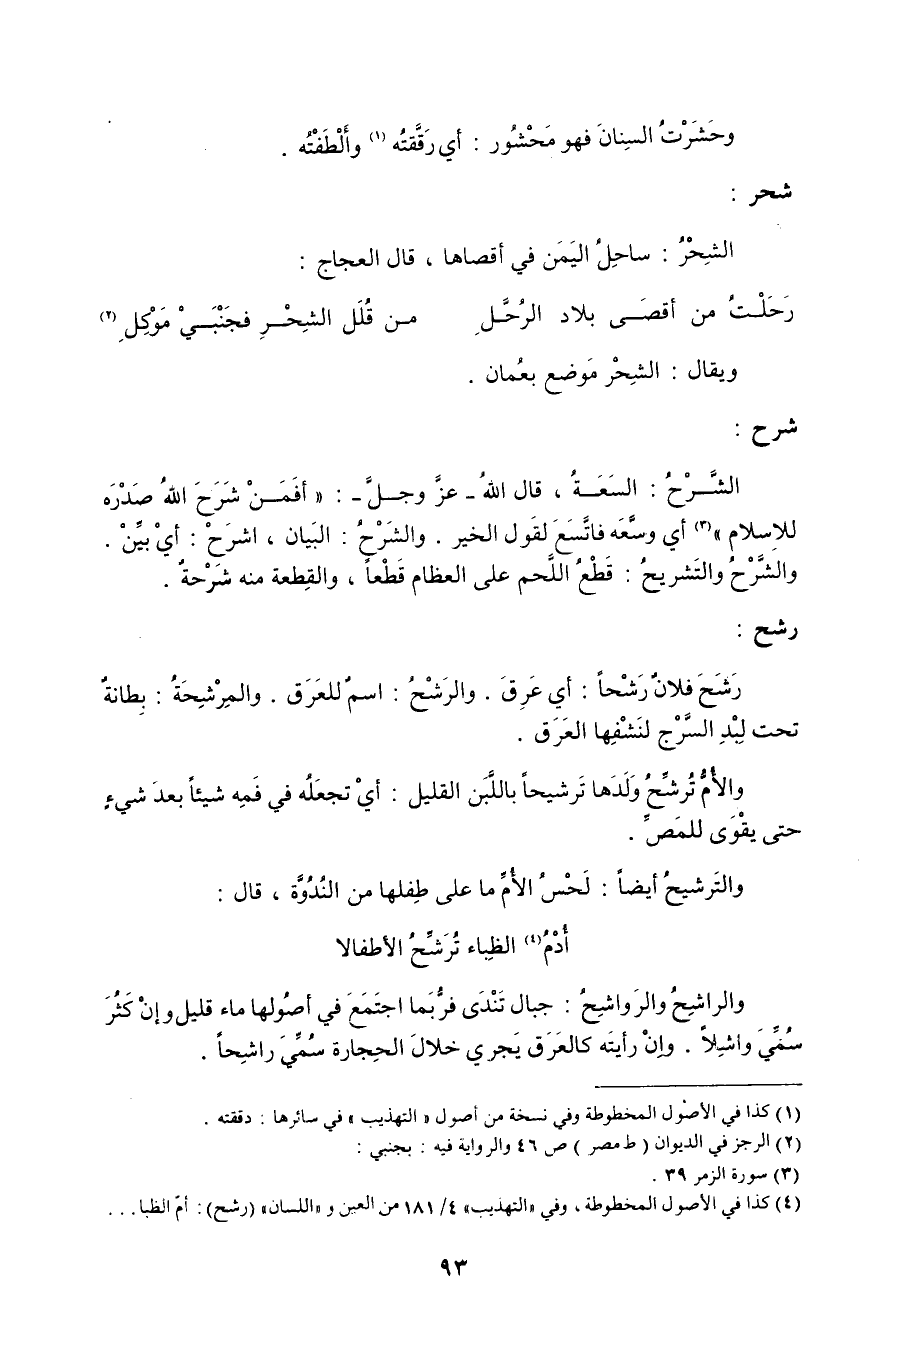 وحَشَرْتُ السِنانَ فهو مَحْشُور : أي رَقَّقتُه (١) وأَلْطَفْتُه .
شحر :
الشِحْرُ : ساحِلُ اليَمَن في أقصاها ، قال العجاج :
رَحَلْتُ من أقصَى بلاد الرُحَّلِ من قُلَل الشِحْرِ فجَنْبَيْ مَوْكِلِ (٢)
ويقال : الشِحْر مَوضع بعُمان .
شرح :
الشَّرْحُ : السَعَةُ ، قال اللهُ ـ عزَّ وجلَّ ـ : « أفَمَنْ شَرَحَ اللهُ صَدْرَه
للإسلام »(٣) أي وسَّعَه فاتَّسَعَ لقول الخير . والشَرْحُ : البَيان ، اشرَحْ : أيْ بيِّنْ .
والشَّرْحُ والتَشريحُ : قَطْعُ اللَّحم على العظام قَطْعاً ، والقِطعة منه شَرْحةٌ .
رشح :
رَشَحَ فلانٌ رَشْحاً : أي عَرِقَ . والرَشْحُ : اسمٌ للعَرَق . والمِرْشَحَةُ : بِطانةٌ
تحت لِبْدِ السَّرْج لنَشْفِها العَرَق .
والأُمُّ تُرشِّحُ وَلَدَها تَرشيحاً باللَّبَن القليل : أيْ تجعَلُه في فَمِه شيئاً بعدَ شيءٍ
حتى يقْوَى للمَصِّ .
والتَرشيحُ أيضاً : لَحْسُ الأُمِّ ما على طِفلها من النُدُوَّة ، قال :
أُدْمُ(٤) الظِباء تُرَشِّحُ الأطفالا
والراشِحُ والرَواشِحُ : جبال تَنْدَى فرُبَّما اجتَمَعَ في أصُولها ماء قليل وإنْ كَثُرَ
سُمِّيَ واشِلاً . وإنْ رأيتَه كالعَرَق يَجري خلالَ الحِجارة سُمِّيَ راشِحاً .
(١) كذا في الأصول المخطوطة وفي نسخة من أصول « التهذيب » في سائرها : دققته .
(٢) الرجز في الديوان ( ط مصر ) ص ٤٦ والرواية فيه : بجنبي :
(٣) سورة الزمر ٣٩ .
(٤) كذا في الأصول المخطوطة ، وفي «التهذيب» ٤/ ١٨١ من العين و «اللسان» (رشح) : أمّ الظبا . . .
٩٣